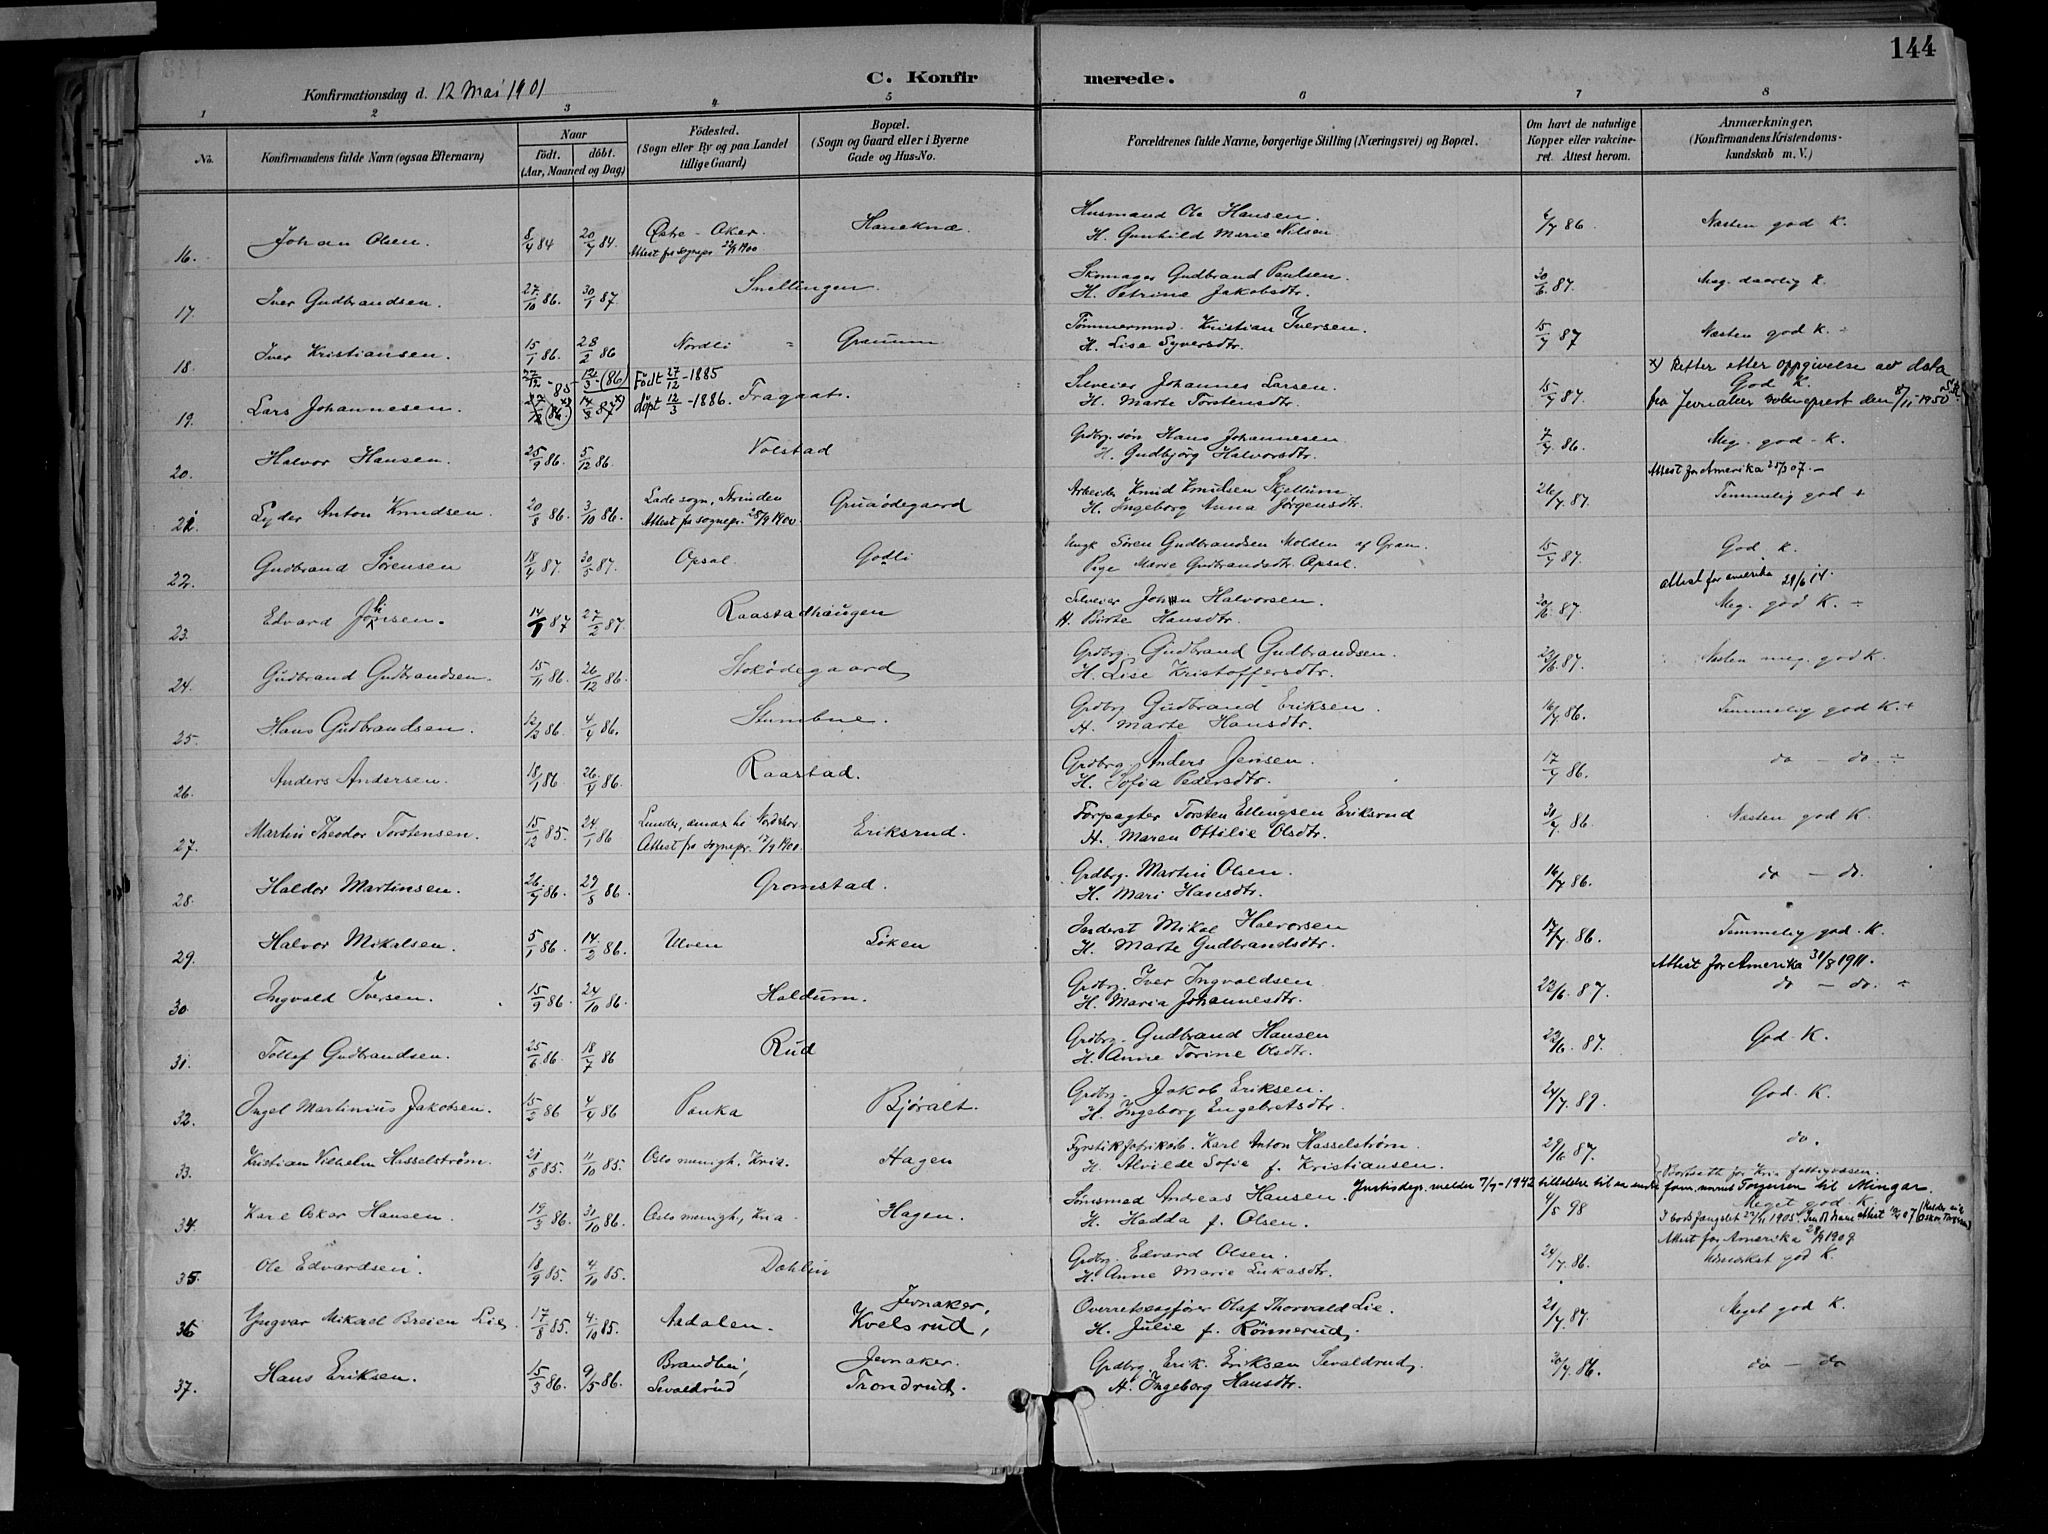 144
C. Konfir merede.
Konfirmationsdag d. 12 Mai 1901
1 2 3 4 5 6 7 8
No.
Konfirmandens fulde Navn (ogsaa Efternavn)
Naar
født. døbt.
(Aar, Maaned og Dag)
Fødested.
(Sogn eller By og paa Landet
tillige Gaard)
Bopæl.
(Sogn og Gaard eller i Byerne
Gade og Hus-No.
Forældrenes fulde Navne, borgerlige Stilling (Næringsvei) og Bopæl.
Om havt de naturlige
Kopper eller vakcine-
ret. Attest herom.
Anmærkninger.
(Konfirmandens Kristendoms-
kundskab m. V.)
16. Johan Olsen. 8/4 84 20/7 84. Østre-Aker. Haneknæ. Husmand Ole Hansen. 6/7 86 Næsten god K.
Attest fra sognepr. 1900 H. Gunhild Marie Nilsen
17. Iver Gudbrandsen. 27/10 86. 30/1 87. Snellingen. Skomager Gudbrand Paulsen. 30/6. 87. Meg. daarlig K.
H. Petrine Jakobsdtr.
18. Iver Kristiansen. 15/1 86. 28/2 86 Nordli Granum Tømmermnd. Kristian Iversen. 15/7 87 Næsten god K.
H. Lise Syversdtr.
x) Rettet etter oppgivelse av data
27/12-85 12/3-(86) Født 27/12-1885
19. Lars Johannesen. 14/3 87 døpt 12/3-1886. Fragaat. Selveier Johannes Larsen. 15/7 87. God K.
H. Marte Torstensdtr. fra Jevnaker sokneprest den 8/11-1950
20. Halvor Hansen. 25/9 86. 5/12 86. Volstad Grdbr. søn Hans Johannesen 7/7 86. Meg. god K.
H. Gudbjörg Halvorsdtr. Attest for Amerika 25/3 07.
21. Lyder Anton Knudsen. 20/8 86. 3/10 86. Lade sogn, Strinden Gruaødegaard Arbeider Knud Knudsen Skjellum 26/7. 87. Temmelig god
Attest fra sognepr. 28/9 1900 H. Ingeborg Anna Jørgensdtr.
22. Gudbrand Sørensen 18/4 87. 30/5 87. Opsal. Godli Ungk Søren Gudbrandsen Molden af Gran. 15/7 87. God K.
Pige Marie Gudbrandsdtr. Opsal. Attest for amerika 29/6 14.
23. Edvard Johnsen. 14/1 87 27/2 87. Raastadhaugen Selveier John Halvorsen. 30/6. 87. Meg. god K.
H. Birte Hansdtr.
24. Gudbrand Gudbrandsen. 15/11 86. 26/12 86. Stokødegaard Grdbrg. Gudbrand Gudbrandsen. 22/6. 87. Næsten meg. god K.
H. Lise Kristoffersdtr.
25. Hans Gudbrandsen. 12/2 86. 4/4 86. Stumbne. Grdbrg. Gudbrand Eriksen. 16/7 86. Temmelig god K.
H. Marte Hansdtr.
26. Anders Andersen. 18/1 86. 26/4 86. Raastad. Grdbrg. Anders Jensen. 17/7 86. do - do.
H. Sofia Pedersdtr.
27. Martin Theodor Torstensen. 15/12 85. 24/1 86 Lunder, annex Eriksrud. Forpagter Torsten Ellingsen Eriksrud 31/7 86. Næsten god K
Attest fra sognepr. 17/9 1900. H. Maren Ottilie Olsdtr.
28. Haldor Martinsen. 26/7 86. 29/8 86. Gromstad. Grdbrg. Martin Olsen. 16/7 86. do - do.
H. Mari Hansdtr.
29. Halvor Mikalsen. 5/1 86. 14/2 86. Ulven Liken Inderst Mikal Halvorsen 17/7. 86. Temmelig god K.
H. Marte Gudbrandsdtr. Attest for Amerika 31/8 1911.
30. Ingvald Iversen. 15/9 86. 24/10 86. Haldum. Grdbrg. Iver Ingvaldsen. 22/6. 87. do - do.
H. Maria Johannesdtr.
31. Tollef Gudbrandsen. 25/6 86. 18/7 86 Rud Grdbrg. Gudbrand Hansen 22/6. 87. God K.
H. Anne Torine Olsdtr.
32. Ingel Martinius Jakobsen. 15/2 86 4/4 86 Pauka Bjøralt. Grdbrg. Jakob Eriksen. 24/7. 89. God. K.
H. Ingeborg Engebretsdtr.
33. Kristian Vilhelm Hasselstrøm. 21/8 85. 11/10 85. Oslo menigh. Kris. Hagen Fyrstikfabrikarb. Karl Anton Hasselstrøm. 29/6 87. do.
H. Alvilde Sofie f. Kristiansen. Bortsatt for Kria fattigvæsen.
Justisdep. melder 7/9-1942 tillatelse til å endre fam.navnet Torgersen til Mingar.
34. Karl Oskar Hansen. 19/3 86. 31/10 86. Oslo menigh. Kria. Hagen. Sømand Andreas Hansen. 4/5 98 Meget god K.
H. Hadda f. Olsen.
Attest for Amerika 1909
35. Ole Edvardsen. 18/9 85. 4/10 85. Dæhlin Grdbrg. Edvard Olsen. 24/7. 86. Udmærket god K.
H. Anne Marie Lukasdtr.
36 Yngvar Mikael Breien Lie. 17/8 85. 4/10 85. Aadalen. Jevnaker, Kvelsrud, Overretssagfører Olaf Thorvald Lie. 21/7. 87. Meget god K.
H. Julie f. Rönnerud.
37. Hans Eriksen. 15/3 86. 9/5 86. Brandbu, Jevnaker. Grdbrg. Erik Eriksen Sevaldrud. 30/7. 86. do - do
Sevaldrud Trondrud. H. Ingeborg Hansdtr.